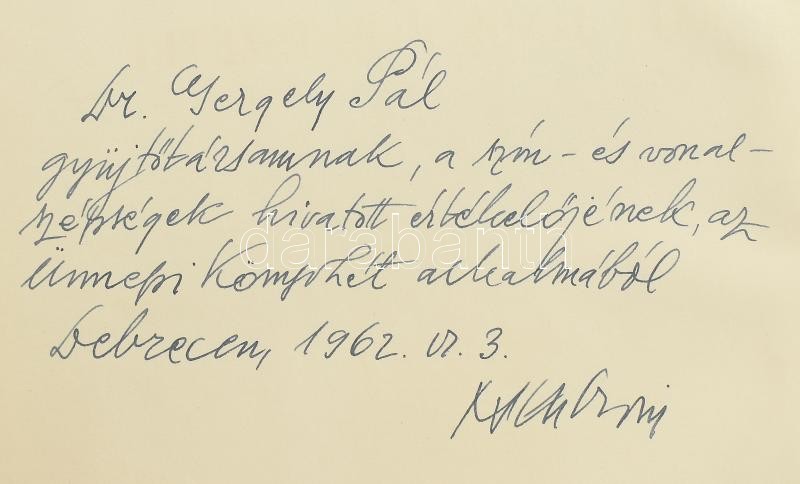 Dr. Gergely Pál
gyűjtőtársamnak, a szín- és vonal-
szépségek hivatott értékelőjének, az
Ünnepi Könyvhét alkalmából
Debrecen, 1962. VI. 3.
darabanth